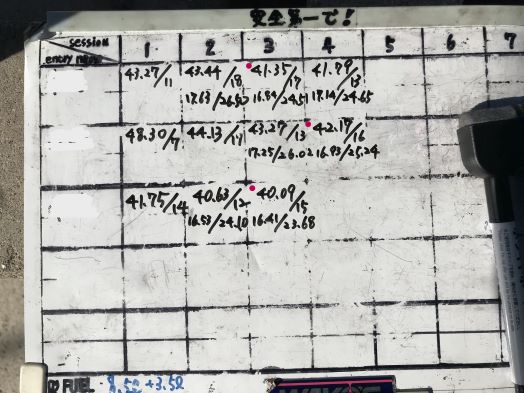 安全第一で!
session 1 2 3 4 5 6 7
entry name
43.27/11 43.44/18 41.35/17 41.79/13
17.63/26.80 16.84/24.51 17.14/24.65
48.30/7 44.13/17 43.27/13 42.17/16
17.25/26.02 16.93/25.24
41.75/14 40.63/12 40.09/15
16.53/24.10 16.41/23.68
FUEL 8.5l +3.5l